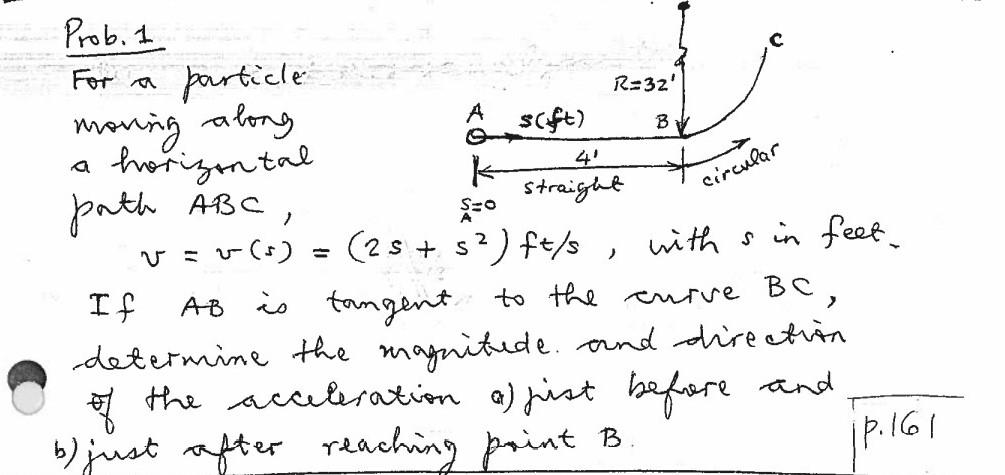 Prob. 1
For a particle
moving along
a horizontal
path ABC,
R=32'
C
A
s(ft)
B
4'
straight
circular
s_A=0
v = v(s) = (2s + s²) ft/s, with s in feet.
If AB is tangent to the curve BC,
determine the magnitude and direction
of the acceleration a) just before and
b) just after reaching point B.
p.161